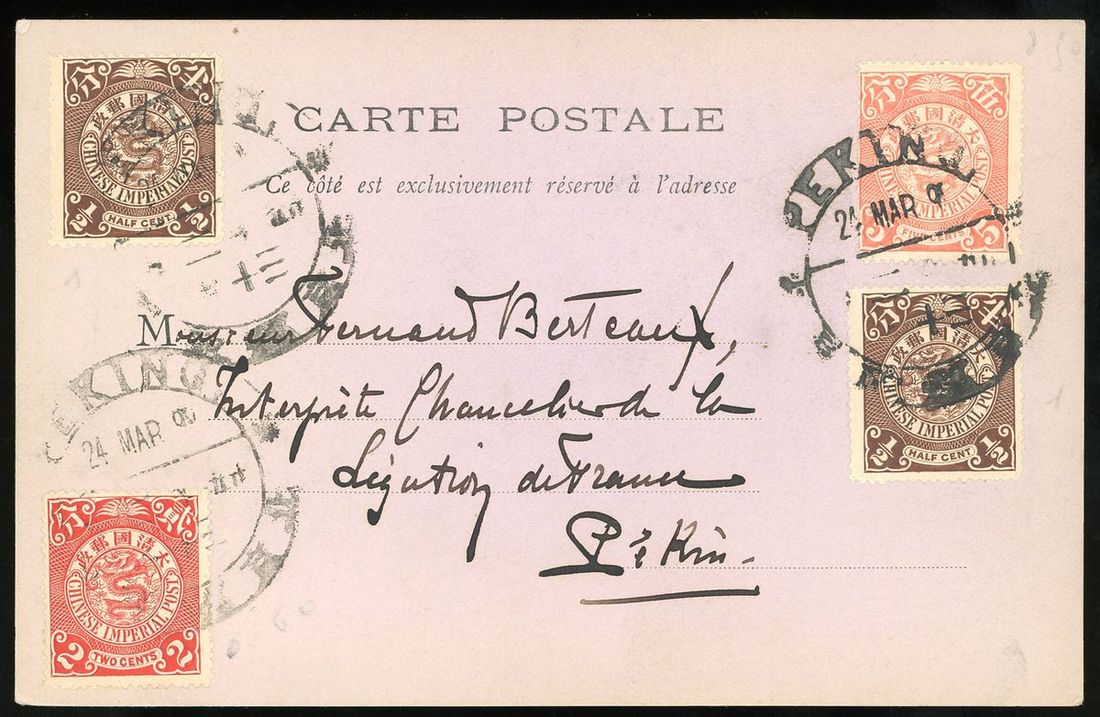 CARTE POSTALE
Ce côté est exclusivement réservé à l'adresse
Monsieur Fernand Berteaux,
Interprète Chancelier de la
Légation de France
Pékin
分 半
大清國郵政
CHINESE IMPERIAL POST
½ HALF CENT ½
分 伍
大清國郵政
IMPERIAL POST
5 FIVE CENTS 5
PEKING
24 MAR
分 半
大清國郵政
CHINESE IMPERIAL POST
½ HALF CENT ½
PEKING
24 MAR
分 貳
大清國郵政
CHINESE IMPERIAL POST
2 TWO CENTS 2